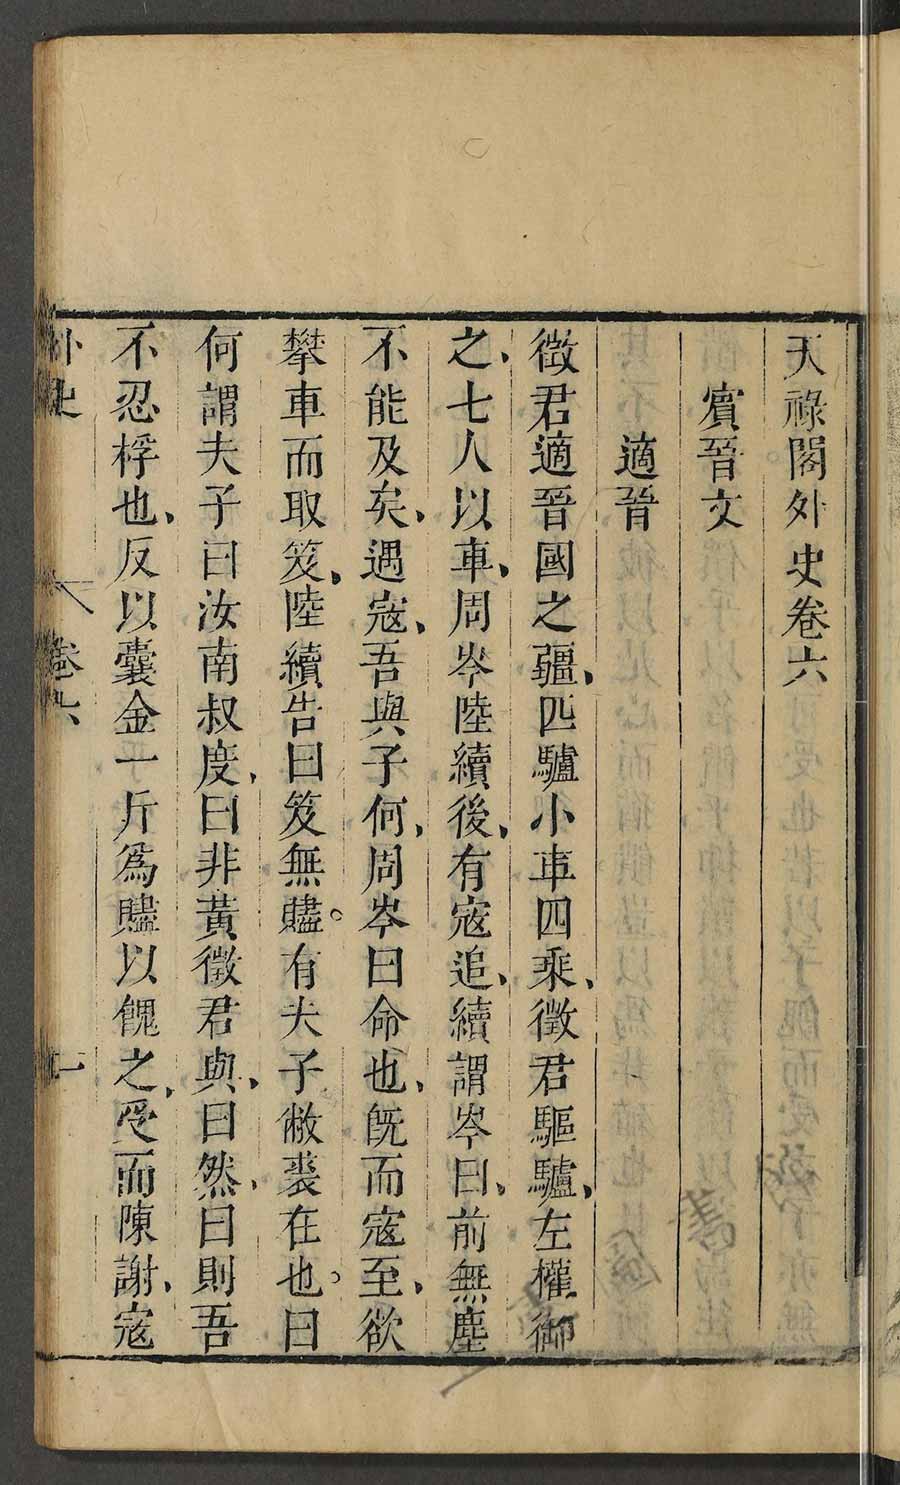 天祿閣外史卷六
賓晉文
適晉
徵君適晉國之疆、匹驢小車四乘、徵君驅驢、左權御
之、七人以車、周岑陸續後、有寇追、續謂岑曰、前無塵
不能及矣、遇寇、吾與子何、周岑曰命也、旣而寇至、欲
攀車而取笈、陸續告曰笈無贐。有夫子敝裘在也。曰
何謂夫子曰汝南叔度、曰非黃徵君與、曰然、曰則吾
不忍桴也、反以囊金一斤爲贐以餽之、受而陳謝、寇
外史 卷六 一